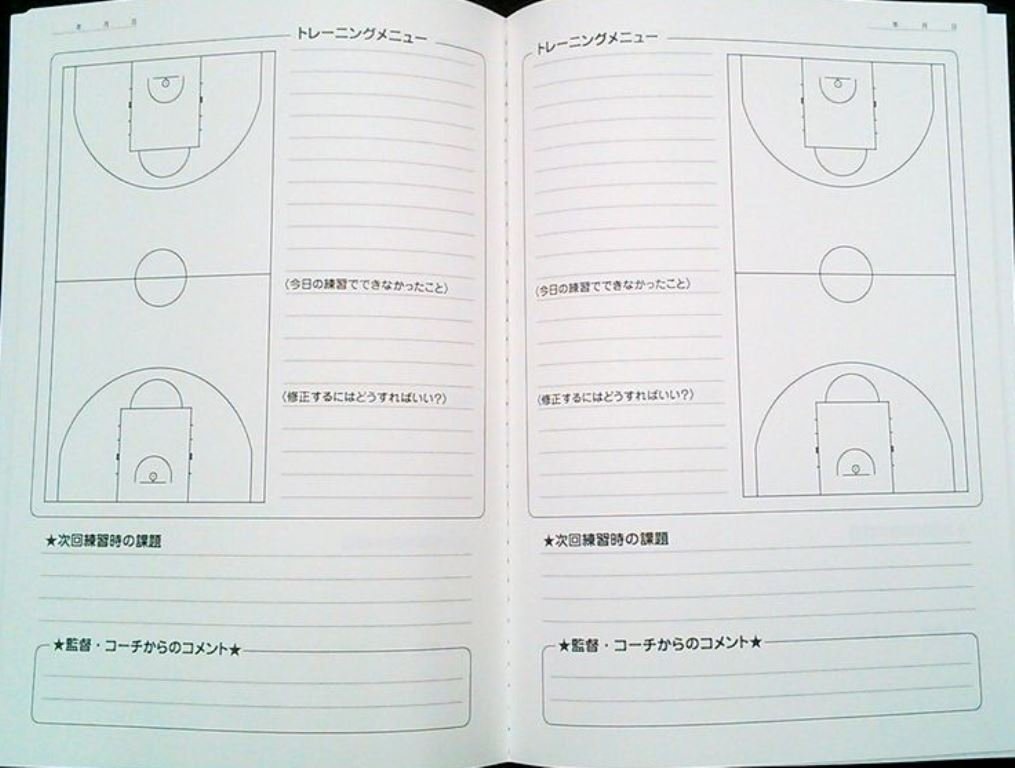 年 月 日
トレーニングメニュー
(今日の練習でできなかったこと)
(修正するにはどうすればいい?)
★次回練習時の課題
★監督・コーチからのコメント★
年 月 日
トレーニングメニュー
(今日の練習でできなかったこと)
(修正するにはどうすればいい?)
★次回練習時の課題
★監督・コーチからのコメント★